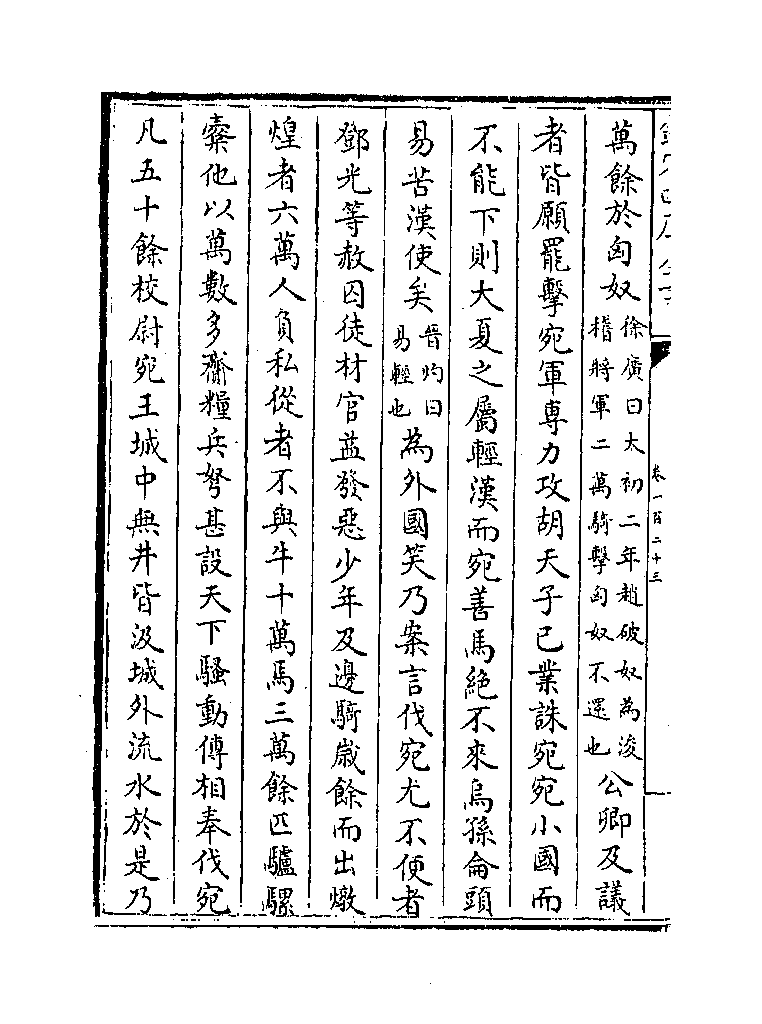 卷一百二十三
萬餘於匈奴徐廣曰太初二年趙破奴為浚稽將軍二萬騎擊匈奴不還也公卿及議
者皆願罷擊宛軍専力攻胡天子已業誅宛宛小國而
不能下則大夏之屬輕漢而宛善馬絶不來烏孫侖頭
易苦漢使矣晉灼曰易輕也為外國笑乃案言伐宛尤不便者
鄧光等赦囚徒材官益發惡少年及邊騎嵗餘而出燉
煌者六萬人負私從者不與牛十萬馬三萬餘匹驢騾
槖他以萬數多齎糧兵弩甚設天下騷動傳相奉伐宛
凡五十餘校尉宛王城中無井皆汲城外流水於是乃